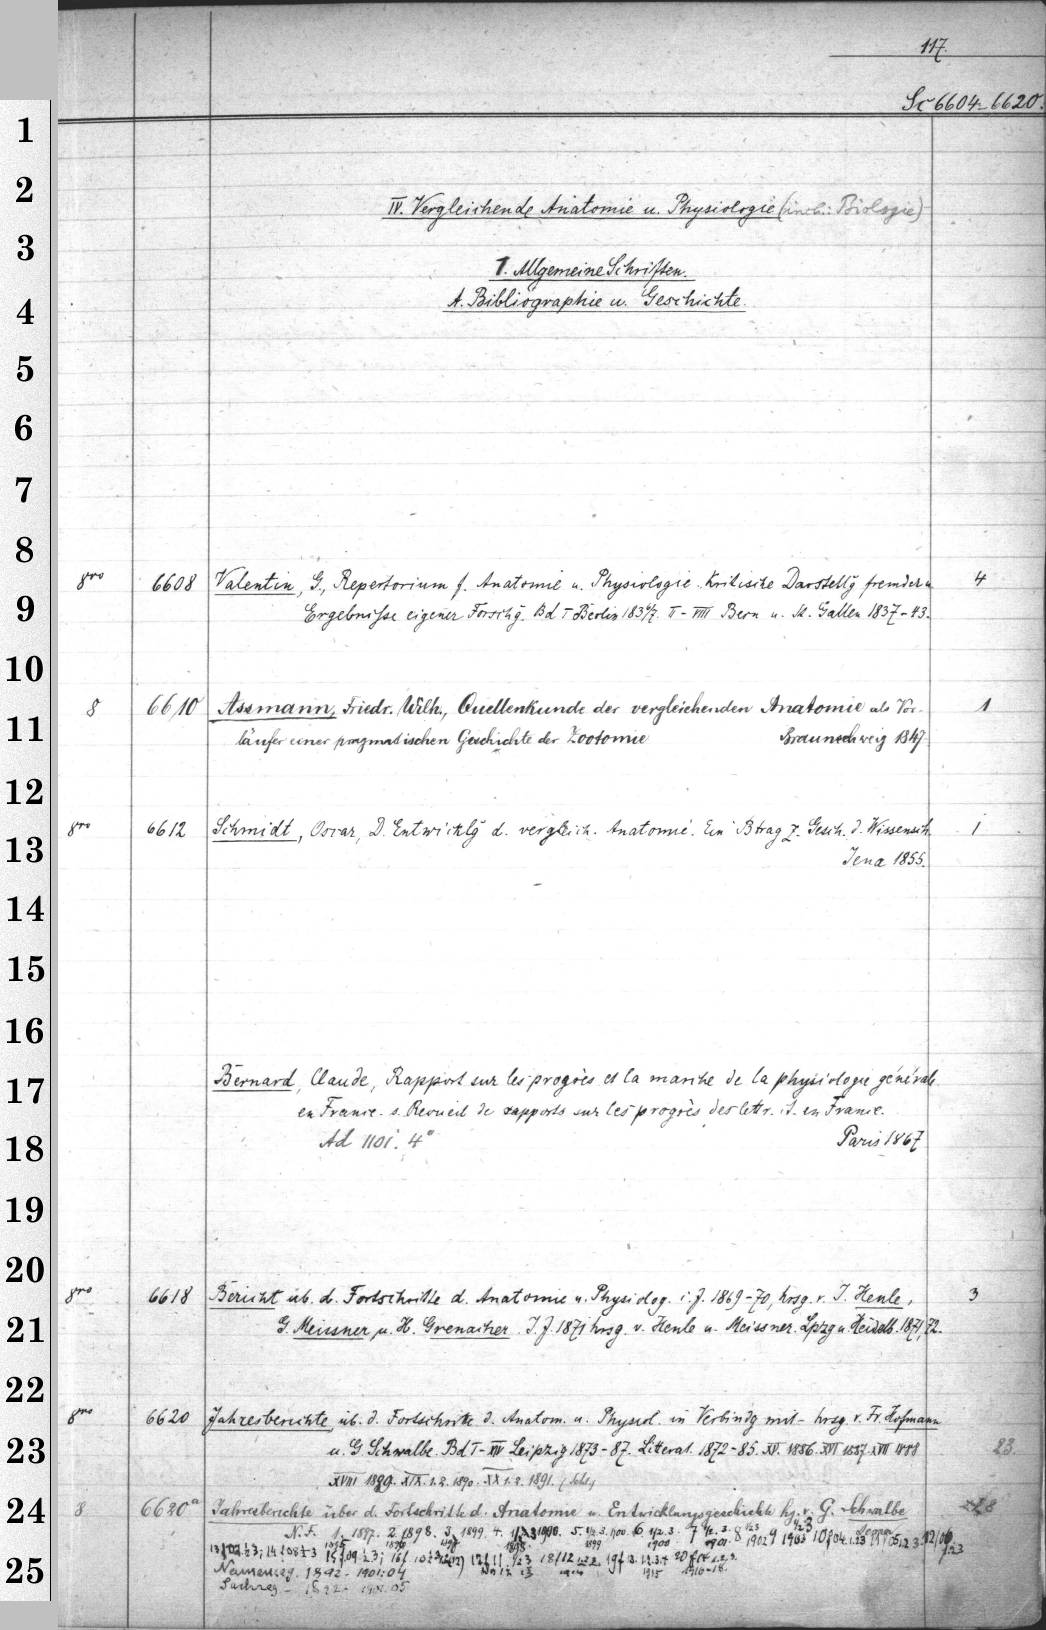 117.
Sc 6604-6620.
1
2
IV. Vergleichende Anatomie u. Physiologie (incl.: Biologie)
3
1. Allgemeine Schriften.
A. Bibliographie u. Geschichte.
4
5
6
7
8
8vo 6608 Valentin, G., Repertorium f. Anatomie u. Physiologie. Kritische Darstellg fremder u 4
9
Ergebnisse eigener Forschg. Bd I Berlin 1836/7. II-VIII Bern u. St. Gallen 1837-43.
10
8 6610 Assmann, Friedr. Wilh., Quellenkunde der vergleichenden Anatomie als Vor- 1
11
läufer einer pragmatischen Geschichte der Zootomie Braunschweig 1847
12
8vo 6612 Schmidt, Oscar, D. Entwicklg d. vergleich. Anatomie. Ein Btrag z. Gesch. d. Wissensch. 1
13
Jena 1855.
14
15
16
17
Bernard, Claude, Rapport sur les progrès et la marche de la physiologie générale
en France. s. Recueil de rapports sur les progrès des lettr. en France.
18
Ad 1101. 4° Paris 1867
19
20
8vo 6618 Bericht üb. d. Fortschritte d. Anatomie u. Physiolog. i. J. 1869-70, hrsg. v. J. Henle, 3
21
G. Meissner u. H. Grenacher. I. J. 1871 hrsg. v. Henle u. Meissner. Lpzg u. Heidelb. 1871, 72.
22
8vo 6620 Jahresberichte üb. d. Fortschritte d. Anatom. u. Physiol. in Verbindg mit - hrsg. v. Fr. Hofmann
23
u. G. Schwalbe. Bd I-XIV Leipzig 1873-87. Litterat. 1872-85. XV. 1886. XVI 1887. XVII 1888 23.
XVIII 1889. XIX. 1.2. 1890. XX 1.2. 1891.
24
8 6620a Jahresberichte über d. Fortschritte d. Anatomie u. Entwicklungsgeschichte hg. v. G. Schwalbe
N.F. 1. 1897. 2 1898. 3. 1899. 4.
25
1892-1901.04
1892-1901.05